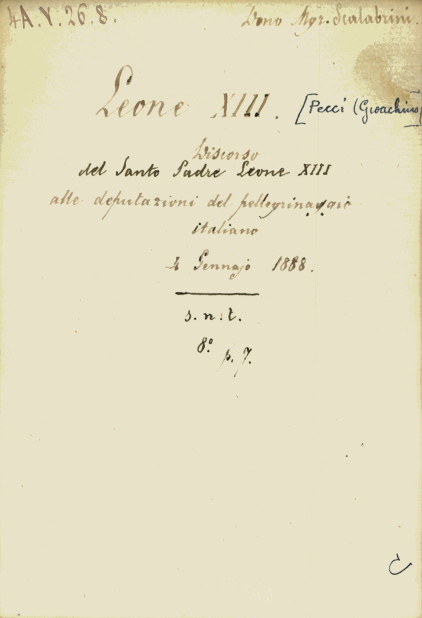 4A.V.26.8.
Dono Mgr. Scalabrini.
Leone XIII. [Pecci (Gioachino)
Discorso
del Santo Padre Leone XIII
alle deputazioni del pellegrinaggio
italiano
4 Gennajo 1888.
s.n.t.
8.° p. 7.
C